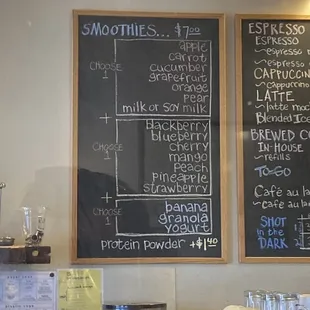 SMOOTHIES... $7.00
CHOOSE
1
apple
carrot
cucumber
grapefruit
orange
pear
milk or soy milk
+
CHOOSE
1
blackberry
blueberry
cherry
mango
peach
pineapple
strawberry
+
CHOOSE
1
banana
granola
yogurt
protein powder +$1.40
ESPRESSO
ESPRESSO
~espresso
~espresso
CAPPUCCIN
~cappuccino
LATTE
~latte moc
Blended Ice
BREWED CO
IN-HOUSE
~refills
TO-GO
Café au la
~café au la
SHOT
IN THE
DARK